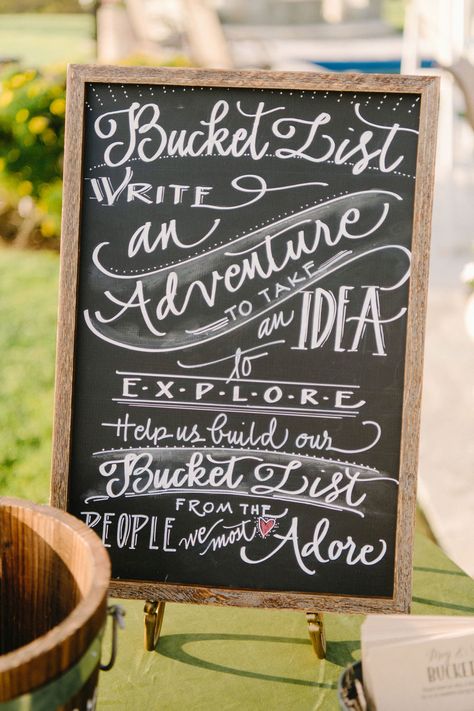 Bucket List
WRITE
an
Adventure
TO TAKE
an IDEA
to
EXPLORE
Help us build our
Bucket List
FROM THE
PEOPLE we most Adore
BUCKET